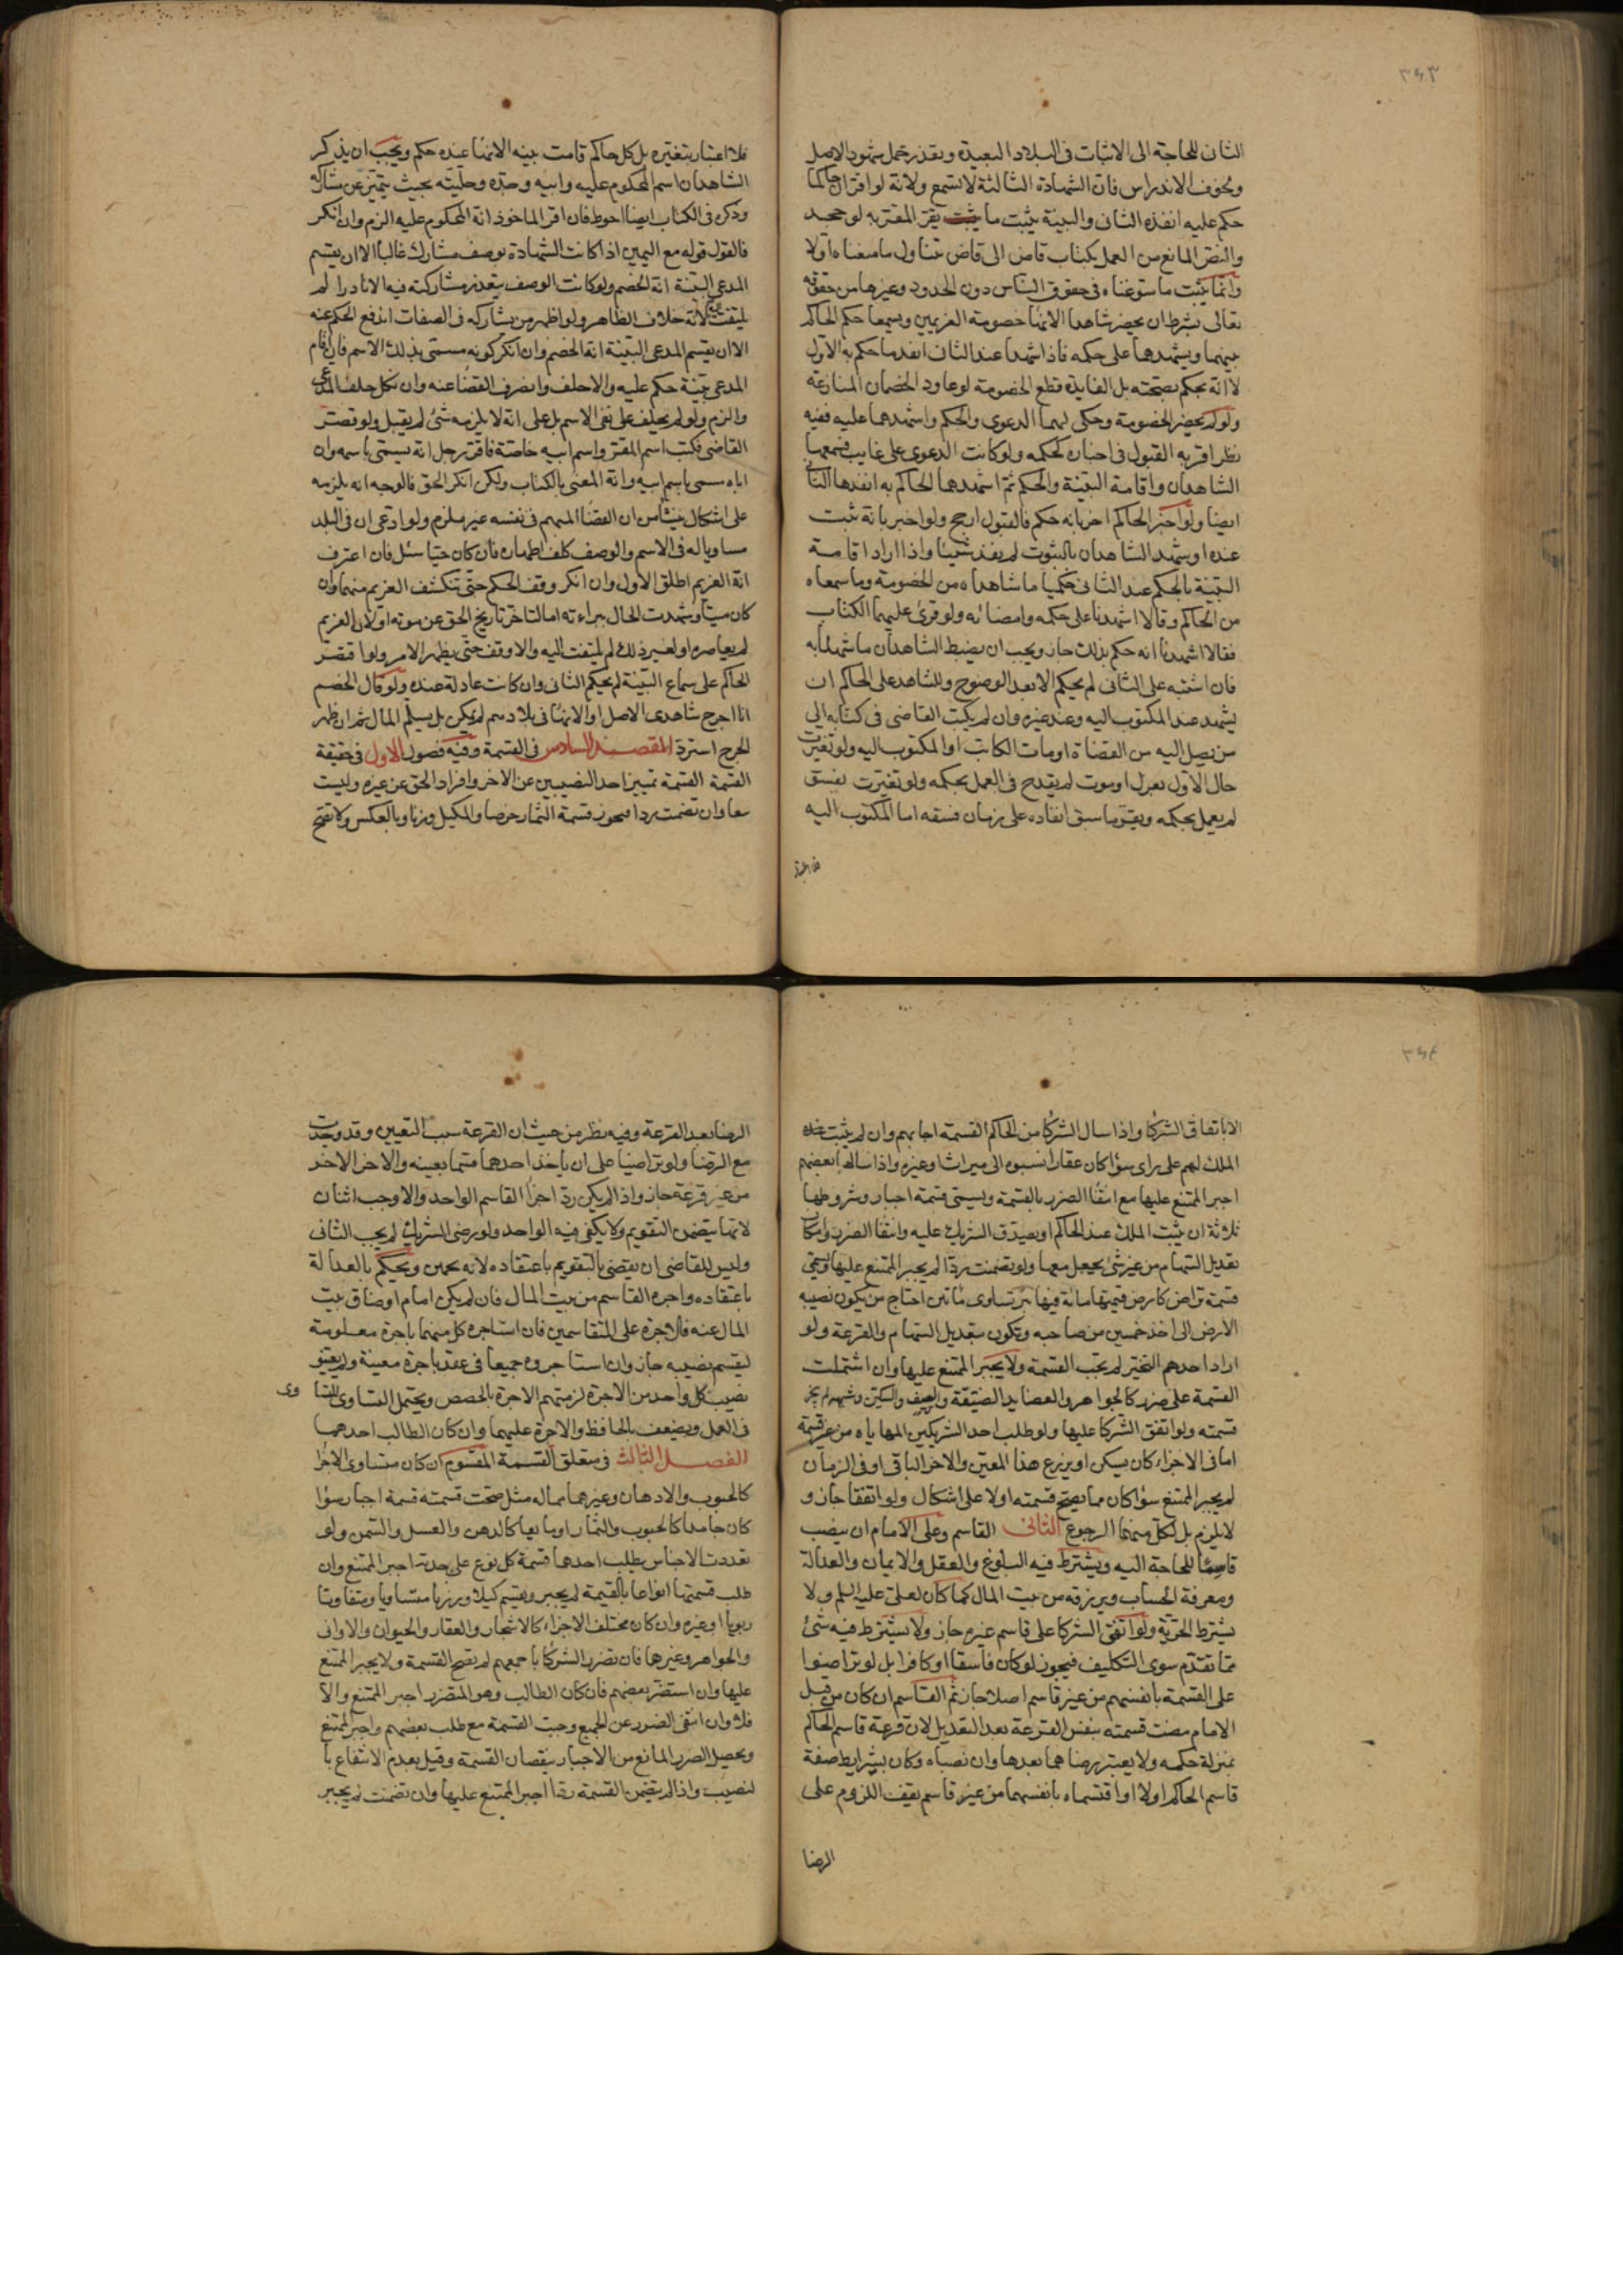 ٣٤٣
الثانى للحاجة الى الاثبات فى البلاد البعيدة وتعذر حمل شهود الاصل
ولخوف الاندراس فان الشهادة الثالثة لا تسمع ولانه لو اقرا ان حاكما
حكم عليه انفذه الثانى والبينة يثبت ما يثبت يقر المقر به لو جحد
والنص المانع من العمل بكتاب قاض الى قاض يتناول ما منعناه اولا
وانما يثبت ما سوغناه فى حقوق الناس دون الحدود وغيرها من حقوقه
تعالى بشرط ان يحضر شاهدا الانها خصومة الغريمين ويسمعا حكم الحاكم
بينهما ويشهدهما على حكمه فاذا شهدا عند الثانى انفذ ما حكم به الاول
لا انه يحكم بصحته بل الفايدة قطع الخصومة لو عاود الخصمان المنازعة
ولو لم يحضر الخصومة وحكى لهما الدعوى والحكم واشهدهما عليه ففيه
نظر اقربه القبول فى اخباره لحكمه ولو كانت الدعوى على غايب فسمعها
الشاهدان واقامة البينة والحكم ثم اشهدهما الحاكم به انفذها الثانى
ايضا ولو اخبر الحاكم اخر بانه حكم فالقبول ارجح ولو اخبر بانه ثبت
عنده او شهد الشاهدان بالثبوت لم يفد شيئا واذا اراد اقامة
البينة بالحكم عند الثانى حكيا ما شاهداه من الخصومة وما سمعاه
من الحاكم وقالا اشهدنا على حكمه وامضائه ولو قرئ عليهما الكتاب
فقالا اشهدنا انه حكم بذلك جاز ويجب ان يضبط الشاهدان ما شهدا به
فان اشتبه على الثانى لم يحكم الا بعد الوضوح وللشاهد على الحاكم ان
يشهد عند المكتوب اليه وعند غيره وان لم يكتب القاضى فى كتابه الى
من يصل اليه من القضاة او مات الكاتب او المكتوب اليه ولو تغيرت
حال الاول بعزل او موت لم يقدح فى العمل بحكمه ولو تغيرت بفسق
لم يعمل بحكمه ويقر ما سبق انفاذه على زمان فسقه اما المكتوب اليه
فلا اعتبار
فلا اعتبار بتغيره بل كل حاكم قامت بينه الانها عنده حكم ويجب ان يذكر
الشاهدان اسم المحكوم عليه وابيه وجده وحليته بحيث يتميز عن مشاركه
وذكره فى الكتاب ايضا احوط فان اقر الماخوذ انه المحكوم عليه الزم وان انكر
فالقول قوله مع اليمين اذا كانت الشهادة بوصف مشارك غالبا الا ان يقيم
المدعى البينة انه الخصم ولو كانت الوصف يتعذر مشاركته فيه الا نادرا لم
يلتفت اليه لانه خلاف الظاهر ولو اظهر من يشاركه فى الصفات اندفع الحكم عنه
الا ان يقيم المدعى البينة انه الخصم وان انكر كونه مسمى بذلك الاسم فان اقام
المدعى بينة حكم عليه والا حلف وانصرف القضا عنه وان نكل حلف المدعى
والزم ولو لم يحلف على نفى الاسم بل على انه لا يلزمه شئ لم يقبل ولو قصر
القاضى فكتب اسم المقر واسم ابيه خاصة فاقر رجل انه يسمى باسمه وان
اباه سمى باسم ابيه وانه المعنى بالكتاب ولكن انكر الحق فالوجه انه يلزمه
على اشكال ينشا من ان القضا المبهم فى نفسه غير ملزم ولو ادعى ان فى البلد
مساويا له فى الاسم والوصف كلف اظهاره فان كان حيا سئل فان اعترف
انه الغريم اطلق الاول وان انكر وقف الحكم حتى تنكشف الغريم منهما وان
كان ميتا وشهدت الحال ببراءته اما لتاخر تاريخ الحق عن موته او لان الغريم
لم يعاصره او لغير ذلك لم يلتفت اليه والا وقف حتى يظهر الامر ولو اقتصر
الحاكم على سماع البينة لم يحكم الثانى وان كانت عادلة عنده ولو قال الخصم
انا اجرح شاهدى الاصل او الانها فى بلادهم لم يمكن بل يسلم المال ثم ان ظهر
الجرح استرد المقصد السادس فى القسمة وفيه فصول الاول فى حقيقة
القسمة القسمة تمييز احد النصيبين عن الاخر وافراد الحق عن غيره وليست
بيعا وان تضمنت ردا فيجوز قسمة الثمار خرصا والمكيل وزنا وبالعكس ولا تصح
٣٤٤
الا باتفاق الشركا واذا سال الشركا من الحاكم القسمة اجابهم وان لم يثبت عنده
الملك لهم على راى سواء كان عقارا نسبوه الى ميراث او غيره واذا سالها بعضهم
اجبر الممتنع عليها مع انتفا الضرر بالقسمة ويسمى قسمة اجبار وشروطها
ثلاثة ان يثبت الملك عند الحاكم او يصدق الشريك عليه وانتفا الضرر وامكان
تعديل السهام من غير شئ يجعل معها ولو تضمنت ردا لم يجبر الممتنع عليها وتسمى
قسمة تراض كارض قيمتها مائة فيها بئر تساوى مائتين احتاج من يكون نصيبه
الارض الى اخذ خمسين من صاحبه ويكون بتعديل السهام والقرعة ولو
اراد احدهم التخير لم يجب القسمة ولا يجبر الممتنع عليها وان اشتملت
القسمة على ضرر كالجواهر والعضايد الضيقة والسيف والسكين وشبهه لم يجز
قسمته ولو اتفق الشركا عليها ولو طلب احد الشريكين المهاياه من غير قسمة
اما فى الاجزاء كان يسكن او يزرع هذا المعين والاخر الباقى او فى الزمان
لم يجبر الممتنع سواء كان مما يصح قسمته او لا على اشكال ولو اتفقا جاز و
لا يلزم بل لكل منهما الرجوع الثانى القاسم وعلى الامام ان ينصب
قاسما للحاجة اليه ويشترط فيه البلوغ والعقل والايمان والعدالة
ومعرفة الحساب ويرزقه من بيت المال كما كان لعلى عليه السلم ولا
يشترط الحرية ولو اتفق الشركا على قاسم غيره جاز ولا يشترط فيه شئ
مما تقدم سوى التكليف فيجوز لو كان فاسقا او كافرا بل لو تراضوا
على القسمة بانفسهم من غير قاسم اصلا جاز ثم القاسم ان كان من قبل
الامام مضت قسمته بنفس القرعة بعد التعديل لان قرعة قاسم الحاكم
بمنزلة حكمه ولا يعتبر رضاهما بعدها وان نصباه وكان بشرايط صفة
قاسم الحاكم اولا او اقتسماه بانفسهما من غير قاسم يقف اللزوم على
الرضا
الرضا بعد القرعة وفيه نظر من حيث ان القرعة سبب التعيين وقد وجدت
مع الرضا ولو تراضيا على ان ياخذ احدهما قسما بعينه والاخر الاخر
من غير قرعة جاز واذا لم يكن رد اجزأ القاسم الواحد والا وجب اثنان
لانها يتضمن التقويم ولا يكفى فيه الواحد ولو رضى الشريك لم يجب الثانى
وليس للقاضى ان يقضى بالتقويم باعتقاده لانه تخمين ويحكم بالعدالة
باعتقاده واجرة القاسم من بيت المال فان لم يكن امام او ضاق بيت
المال عنه فالاجرة على المتقاسمين فان استاجره كل منهما باجرة معلومة
ليقسم نصيبه جاز وان استاجروه جميعا فى عقد باجرة معينة ولم يعين
نصيب كل واحد من الاجرة لزمتهم الاجرة بالحصص ويحتمل التساوى للتسا وى
فى العمل ويضعف بالحافظ والاجرة عليهما وان كان الطالب احدهما
الفصل الثالث فى متعلق القسمة المقسوم ان كان متساوى الاجزا
كالحبوب والادهان وغيرهما مما له مثل صحت قسمته قسمة اجبار سواء
كان جامدا كالحبوب والثمار او مايعا كالدهن والعسل والسمن ولو
تعددت الاجناس يطلب احدهما قسمة كل نوع على حدته اجبر الممتنع وان
طلب قسمتها انواعا بالقيمة لم يجبر ويقسم كيلا ووزنا متساويا ومتفاوتا
ربويا او غيره وان كان مختلف الاجزاء كالاشجار والعقار والحيوان والاوانى
والجواهر وغيرها فان تضرر الشركا باجمعهم لم تصح القسمة ولا يجبر الممتنع
عليها وان استضر بعضهم فان كان الطالب وهو المتضرر اجبر الممتنع والا
فلا وان انتفى الضرر عن الجميع وجبت القسمة مع طلب بعضهم واجبر الممتنع
ويحصل الضرر المانع من الاجبار بنقصان القسمة وقيل بعدم الانتفاع با
لنصيب واذا لم يتضمن القسمة ردا اجبر الممتنع عليها وان تضمنت لم يجبر